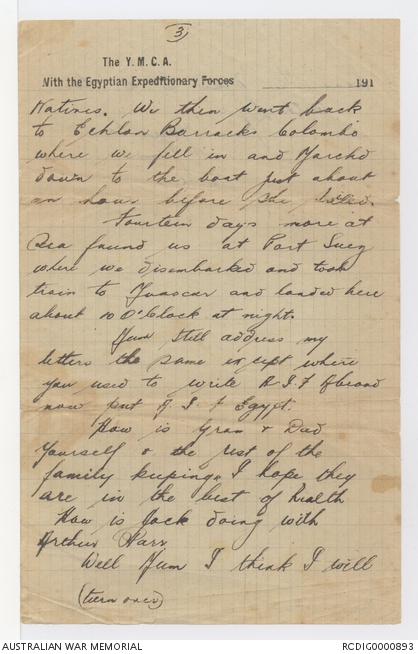 3
The Y.M.C.A.
With the Egyptian Expeditionary Forces
191
Natives. We then went back
to Echlon Barracks Colombo
where we fell in and Marchd
down to the boat just about
an hour before she sailed.
Fourteen days more at
Sea found us at Port Suez
where we disembarked and took
train to and landed here
about 10 O'Clock at night.
Mum still address my
letters the same except where
you used to write A.I.F Abroad
now put A I. F Egypt.
How is Gran & Dad
Yourself & the rest of the
family keeping, I hope they
are in the best of health
How is Jock doing with
Arthur
Well Mum I think I will
(turn over)
AUSTRALIAN WAR MEMORIAL
RCDIG0000893